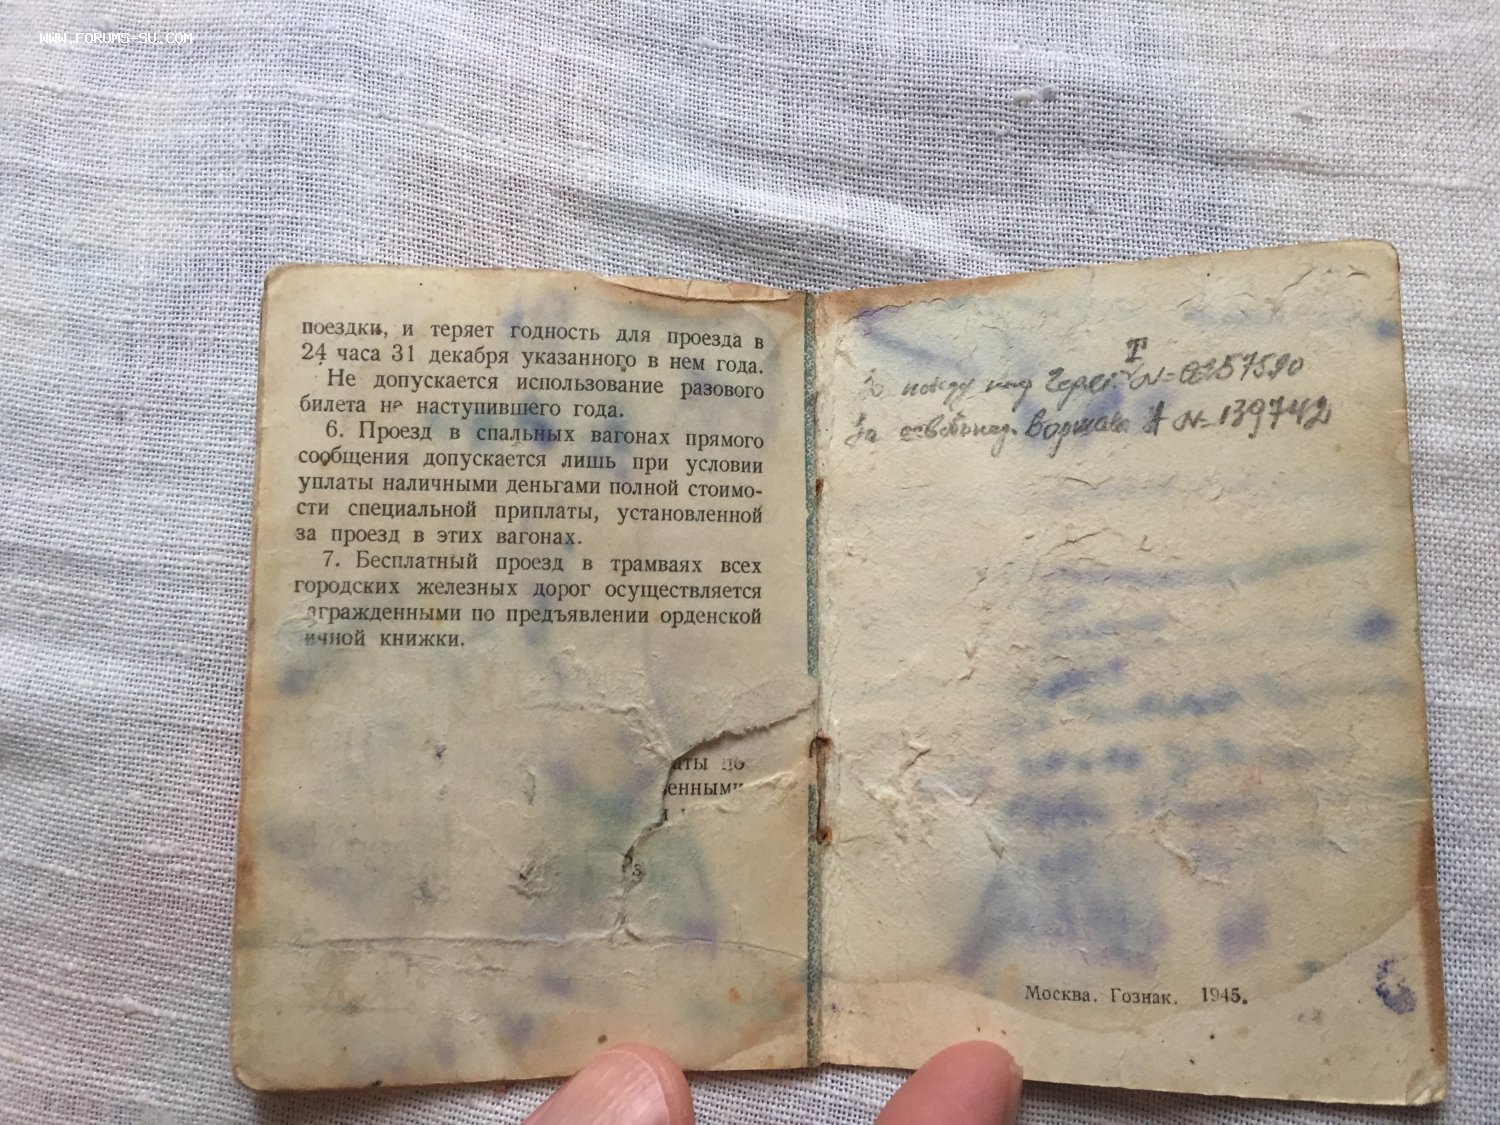 WWW.FORUMS-SU.COM
поездки, и теряет годность для проезда в
24 часа 31 декабря указанного в нем года.
Не допускается использование разового
билета не наступившего года.
6. Проезд в спальных вагонах прямого
сообщения допускается лишь при условии
уплаты наличными деньгами полной стоимо-
сти специальной приплаты, установленной
за проезд в этих вагонах.
7. Бесплатный проезд в трамваях всех
городских железных дорог осуществляется
агражденными по предъявлении орденской
ичной книжки.
аты по
енными
5
Т
За победу над Герм №
За освобожд. Варшава А № 139742
Москва. Гознак. 1945.